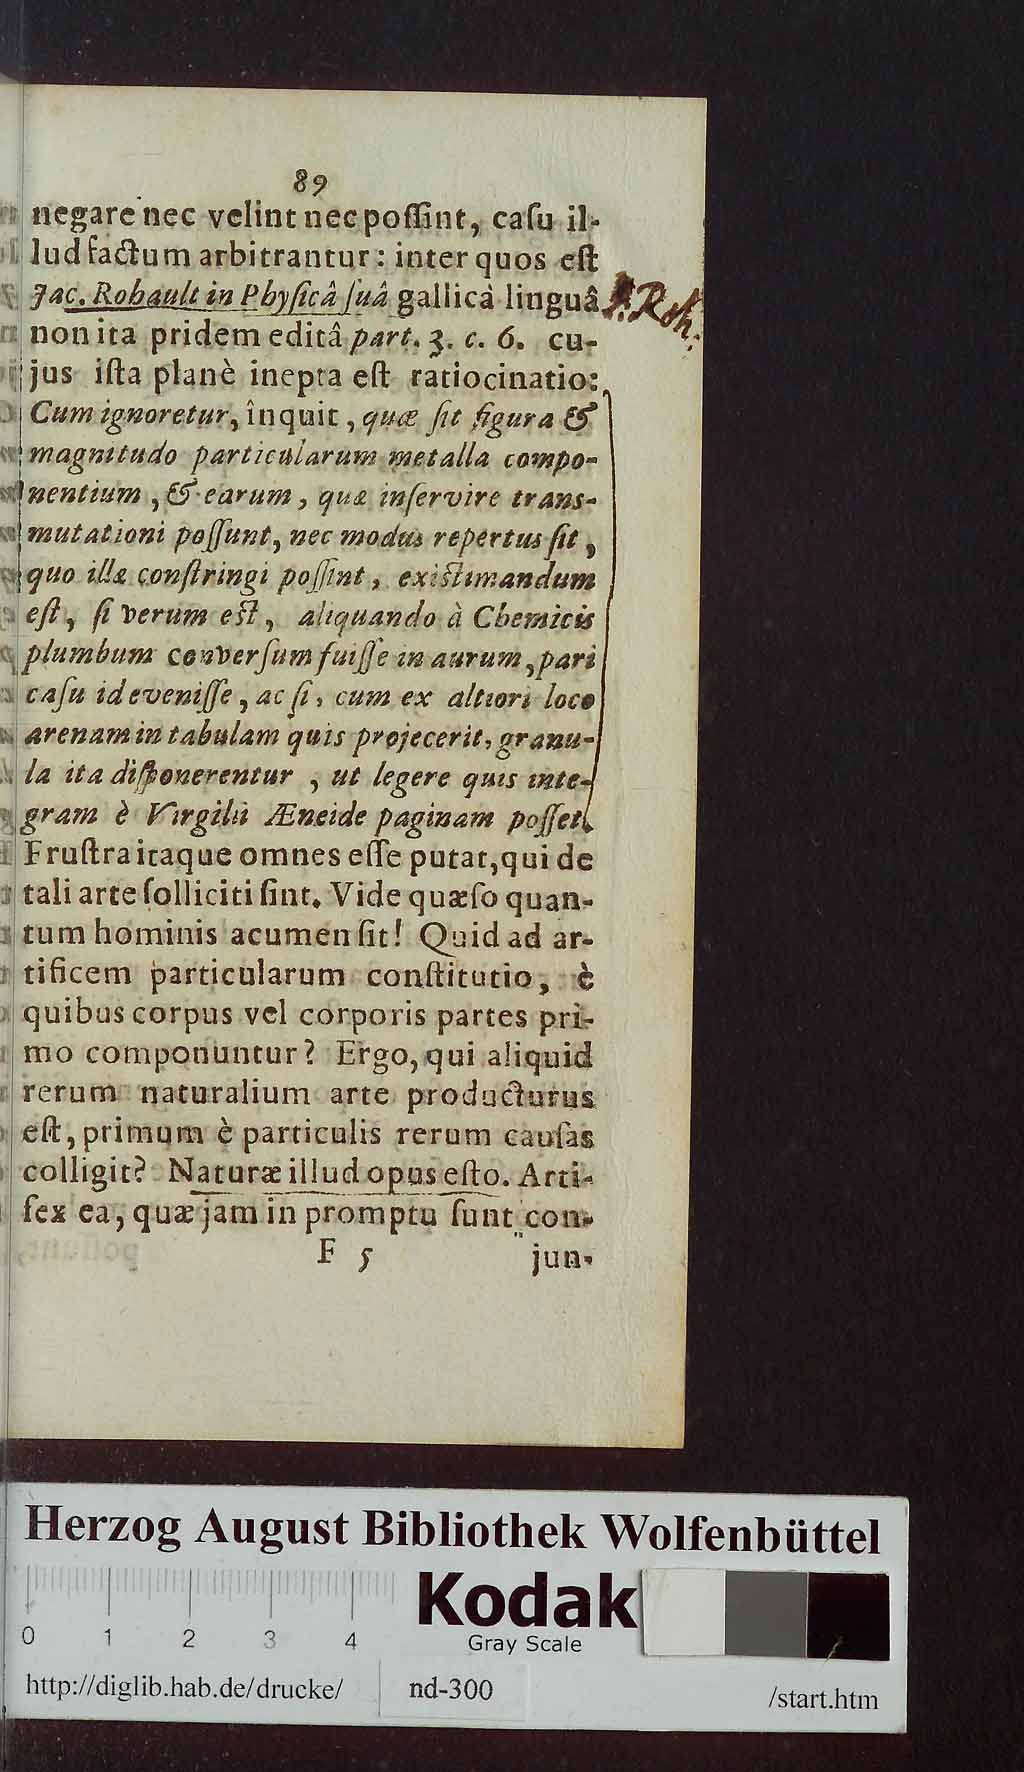 89
negare nec velint nec poſſint, caſu il-
lud factum arbitrantur: inter quos eſt
Jac. Rohault in Phyſicâ ſuâ gallicâ linguâ
J. Roh:
non ita pridem editâ part. 3. c. 6. cu-
jus iſta planè inepta eſt ratiocinatio:
Cum ignoretur, inquit, quæ ſit figura &
magnitudo particularum metalla compo-
nentium, & earum, quæ inſervire trans-
mutationi poſſunt, nec modus repertus ſit,
quo illæ conſtringi poſſint, existimandum
eſt, ſi verum est, aliquando à Chemicis
plumbum converſum fuiſſe in aurum, pari
caſu id eveniſſe, ac ſi, cum ex altiori loco
arenam in tabulam quis projecerit, granu-
la ita diſponerentur, ut legere quis inte-
gram è Virgilii Æneide paginam poſſet.
Fruſtra itaque omnes eſſe putat, qui de
tali arte ſolliciti ſint. Vide quæſo quan-
tum hominis acumen ſit! Quid ad ar-
tificem particularum conſtitutio, è
quibus corpus vel corporis partes pri-
mo componuntur? Ergo, qui aliquid
rerum naturalium arte producturus
eſt, primum è particulis rerum cauſas
colligit? Naturæ illud opus eſto. Arti-
fex ea, quæ jam in promptu ſunt con-
F 5 jun-
Herzog August Bibliothek Wolfenbüttel
Kodak
Gray Scale
0 1 2 3 4
http://diglib.hab.de/drucke/ nd-300 /start.htm